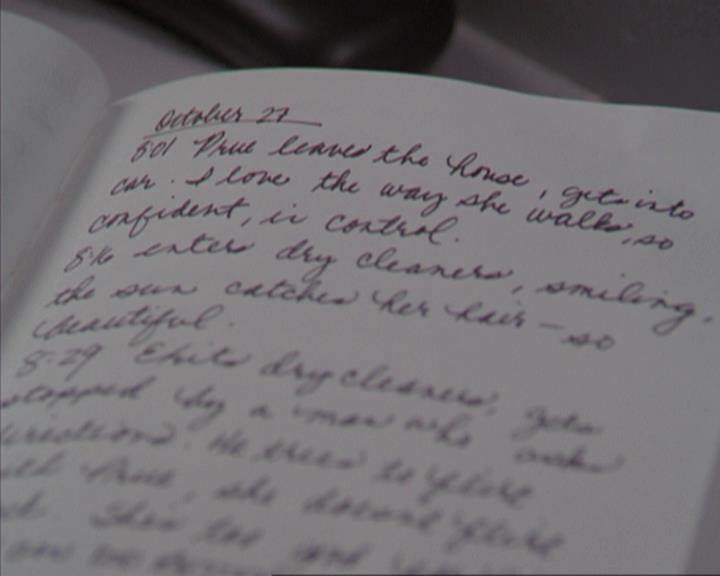 October 27
8:01 Prue leaves the house, gets into
car. I love the way she walks, so
confident, in control.
8:16 enters dry cleaners, smiling.
the sun catches her hair – so
beautiful.
8:29 Exits dry cleaners, gets
stopped by a man who asks
directions. He tries to flirt
with Prue, she doesn't flirt